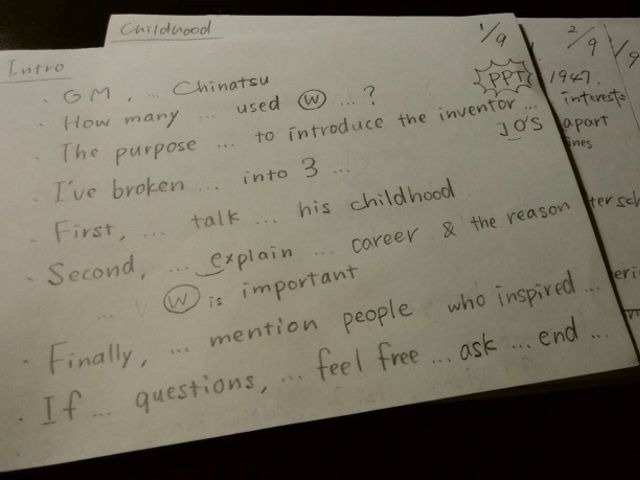 Childhood
1/9
Intro
· GM, ... Chinatsu
PPT
· How many ... used W ... ?
· The purpose ... to introduce the inventor ...
JO'S
· I've broken ... into 3 ...
· First, ... talk ... his childhood
· Second, ... explain ... career & the reason
... W is important
· Finally, ... mention people who inspired ...
· If ... questions, ... feel free ... ask ... end ...
2/9
1947.
interests
apart
ines
ter sch
eri
/9